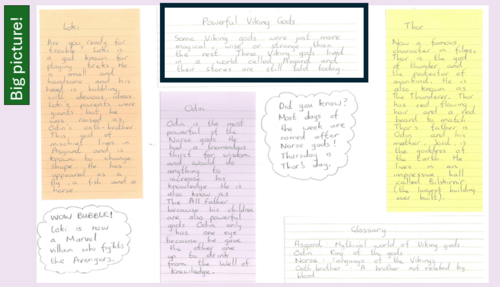 Big picture!
Loki
Are you ready for
trouble? Loki is
a god known for
playing tricks. He
is small and
handsome and his
head is bubbling
with devious ideas.
Loki's parents were
giants but he
was raised as
Odin's oath-brother.
This god of
mischief lives in
Asgard and is
known to change
shape. He has
appeared as a
fly, a fish and a
horse.
WOW BUBBLE!
Loki is now
a Marvel
villain who fights
the Avengers.
Powerful Viking Gods
Some Viking gods were just more
magical, wise or strange than
the rest. These Viking gods lived
in a world called Asgard and
their stories are still told today.
Odin
Odin is the most
powerful of the
Norse gods. He
had a
thirst for wisdom
and would do
anything to
increase his
knowledge. He is
also known as
The All father
because his children
are also powerful
gods. Odin only
has one eye
because he gave
the other one
up to drink
from the Well of
Knowledge.
Did you know?
Most days of
the week are
named after
Norse gods!
Thursday is
Thor's day.
Thor
Now a famous
character in films,
Thor is the god
of thunder and
the protector of
mankind. He is
also known as
The Thunderer. Thor
has red flowing
hair and a red
beard to match.
Thor's father is
Odin and his
mother, Jord, is
the goddess of
the Earth. He
lives in an
impressive hall
called Bilskirnir
(the largest building
ever built).
Glossary
Asgard Mythical world of Viking gods
Odin King of the gods
Norse language of the Vikings
Oath brother A brother not related by
blood